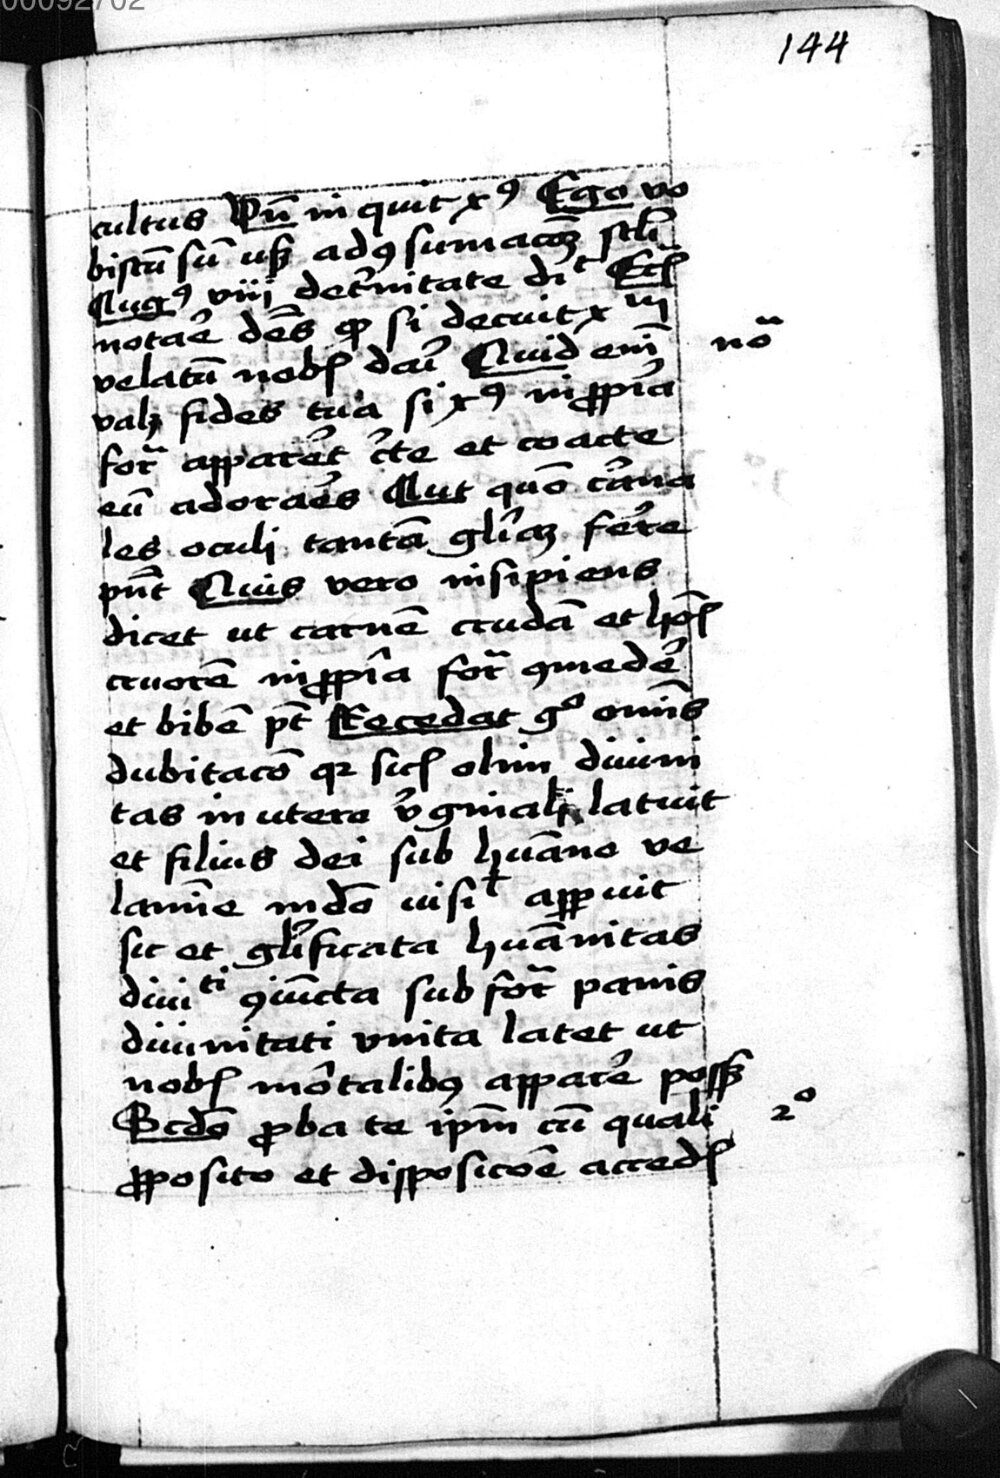 00092702
144
cultus Vn̄ inquit xꝰ Ego vo
biscū sū usqꝫ ad ꝯsumacōꝫ scli
Augꝰ viii de t'nitate dīt
notare dēs ꝙ si decuit x in
velatū nob̄ dari Quid eni
nō
valꝫ fides tua si xꝰ in ꝓpria
for̄ appar̄et c̄te et coacte
eū adorares Aut quō carna
les oculi tantā glīaꝫ ferre
pn̄t Quis vero insipiens
dicet ut carnē crudā et
cruorē in ꝓpria for̄ ꝯmedē
et bibē pt̄ Recedat gº omnis
dubitacō qꝛ sic̄ olim divini
tas in utero v̄ginali latuit
et filius dei sub huāno ve
lamīe mdō visit apparuit
sic et glīficata huānitas
diviti ꝯiūcta sub for̄ panis
divinitati vnita latet ut
nob̄ mōtalibꝰ apparē possꝫ
Scdō ꝓba te ipm̄ cū quali
2º
ꝓposito et disposicōe acced̄